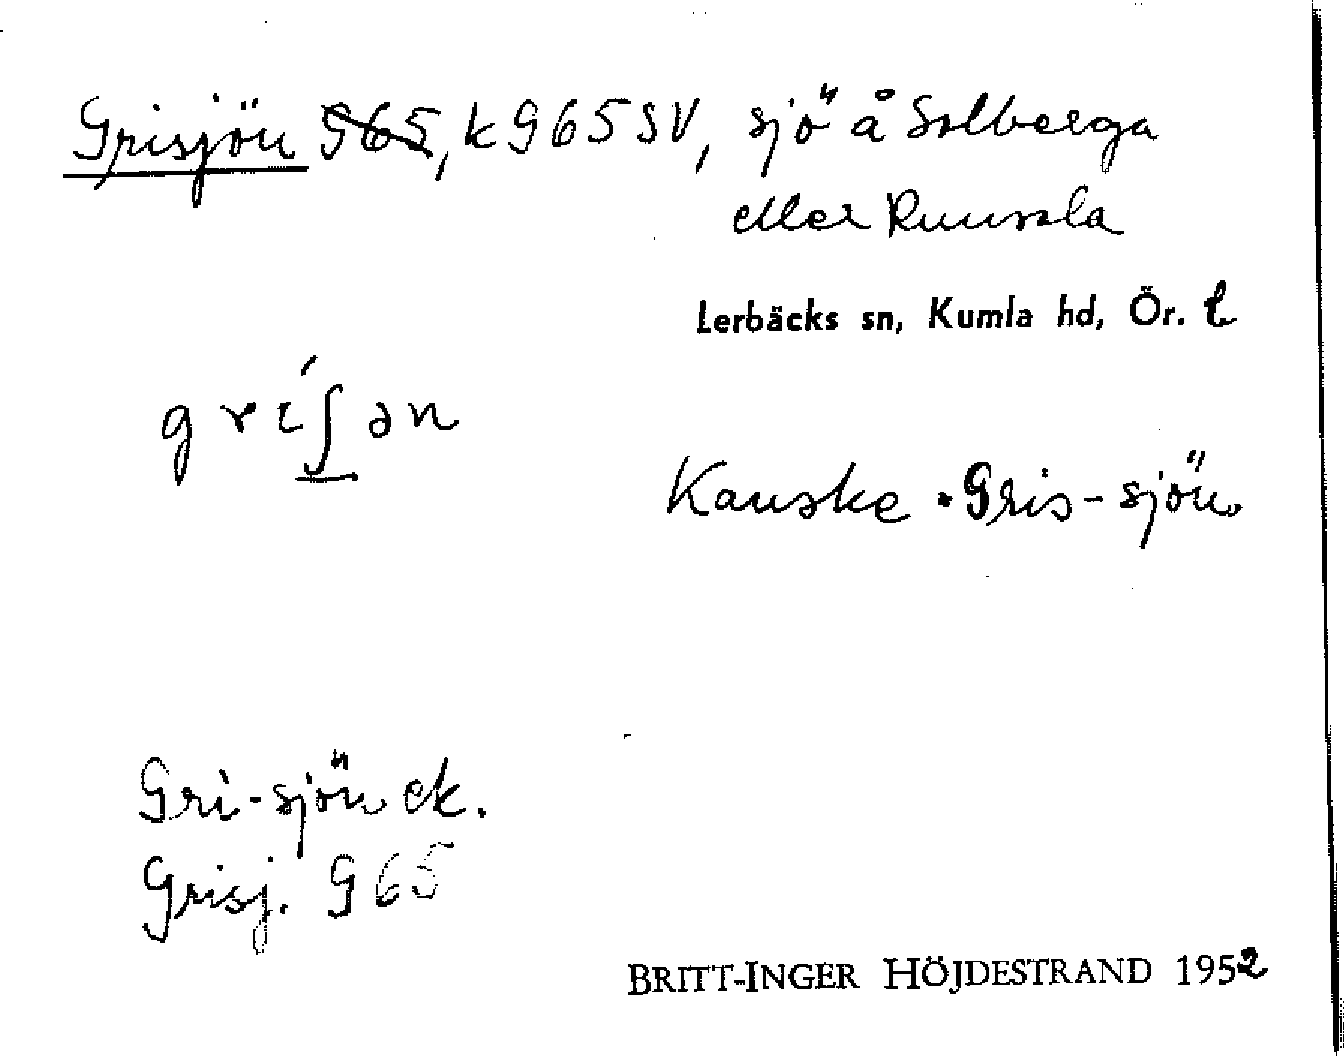 Grisjön G65, k G65SV, sjö å Solberga
eller Runsala
Lerbäcks sn, Kumla hd, Ör. l
gríʃən
Kanske *Gris-sjön
Gri-sjön ek.
Grisj. G65
BRITT-INGER HÖJDESTRAND 1952